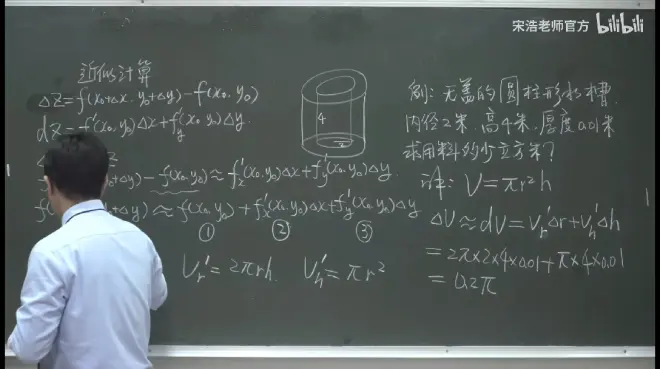 宋浩老师官方 bilibili
近似计算
ΔZ=f(x₀+Δx, y₀+Δy)-f(x₀,y₀)
dZ=f'x(x₀,y₀)Δx+f'y(x₀,y₀)Δy
-f(x₀,y₀)≈f'x(x₀,y₀)Δx+f'y(x₀,y₀)Δy
+Δy)≈f(x₀,y₀)+f'x(x₀,y₀)Δx+f'y(x₀,y₀)Δy
① ② ③
V'r=2πrh V'h=πr²
4
2
例: 无盖的圆柱形水槽,
内径2米, 高4米, 厚度0.01米
求用料多少立方米?
解: V=πr²h
ΔV≈dV=V'rΔr+V'hΔh
=2π×2×4×0.01+π×4×0.01
=0.2π